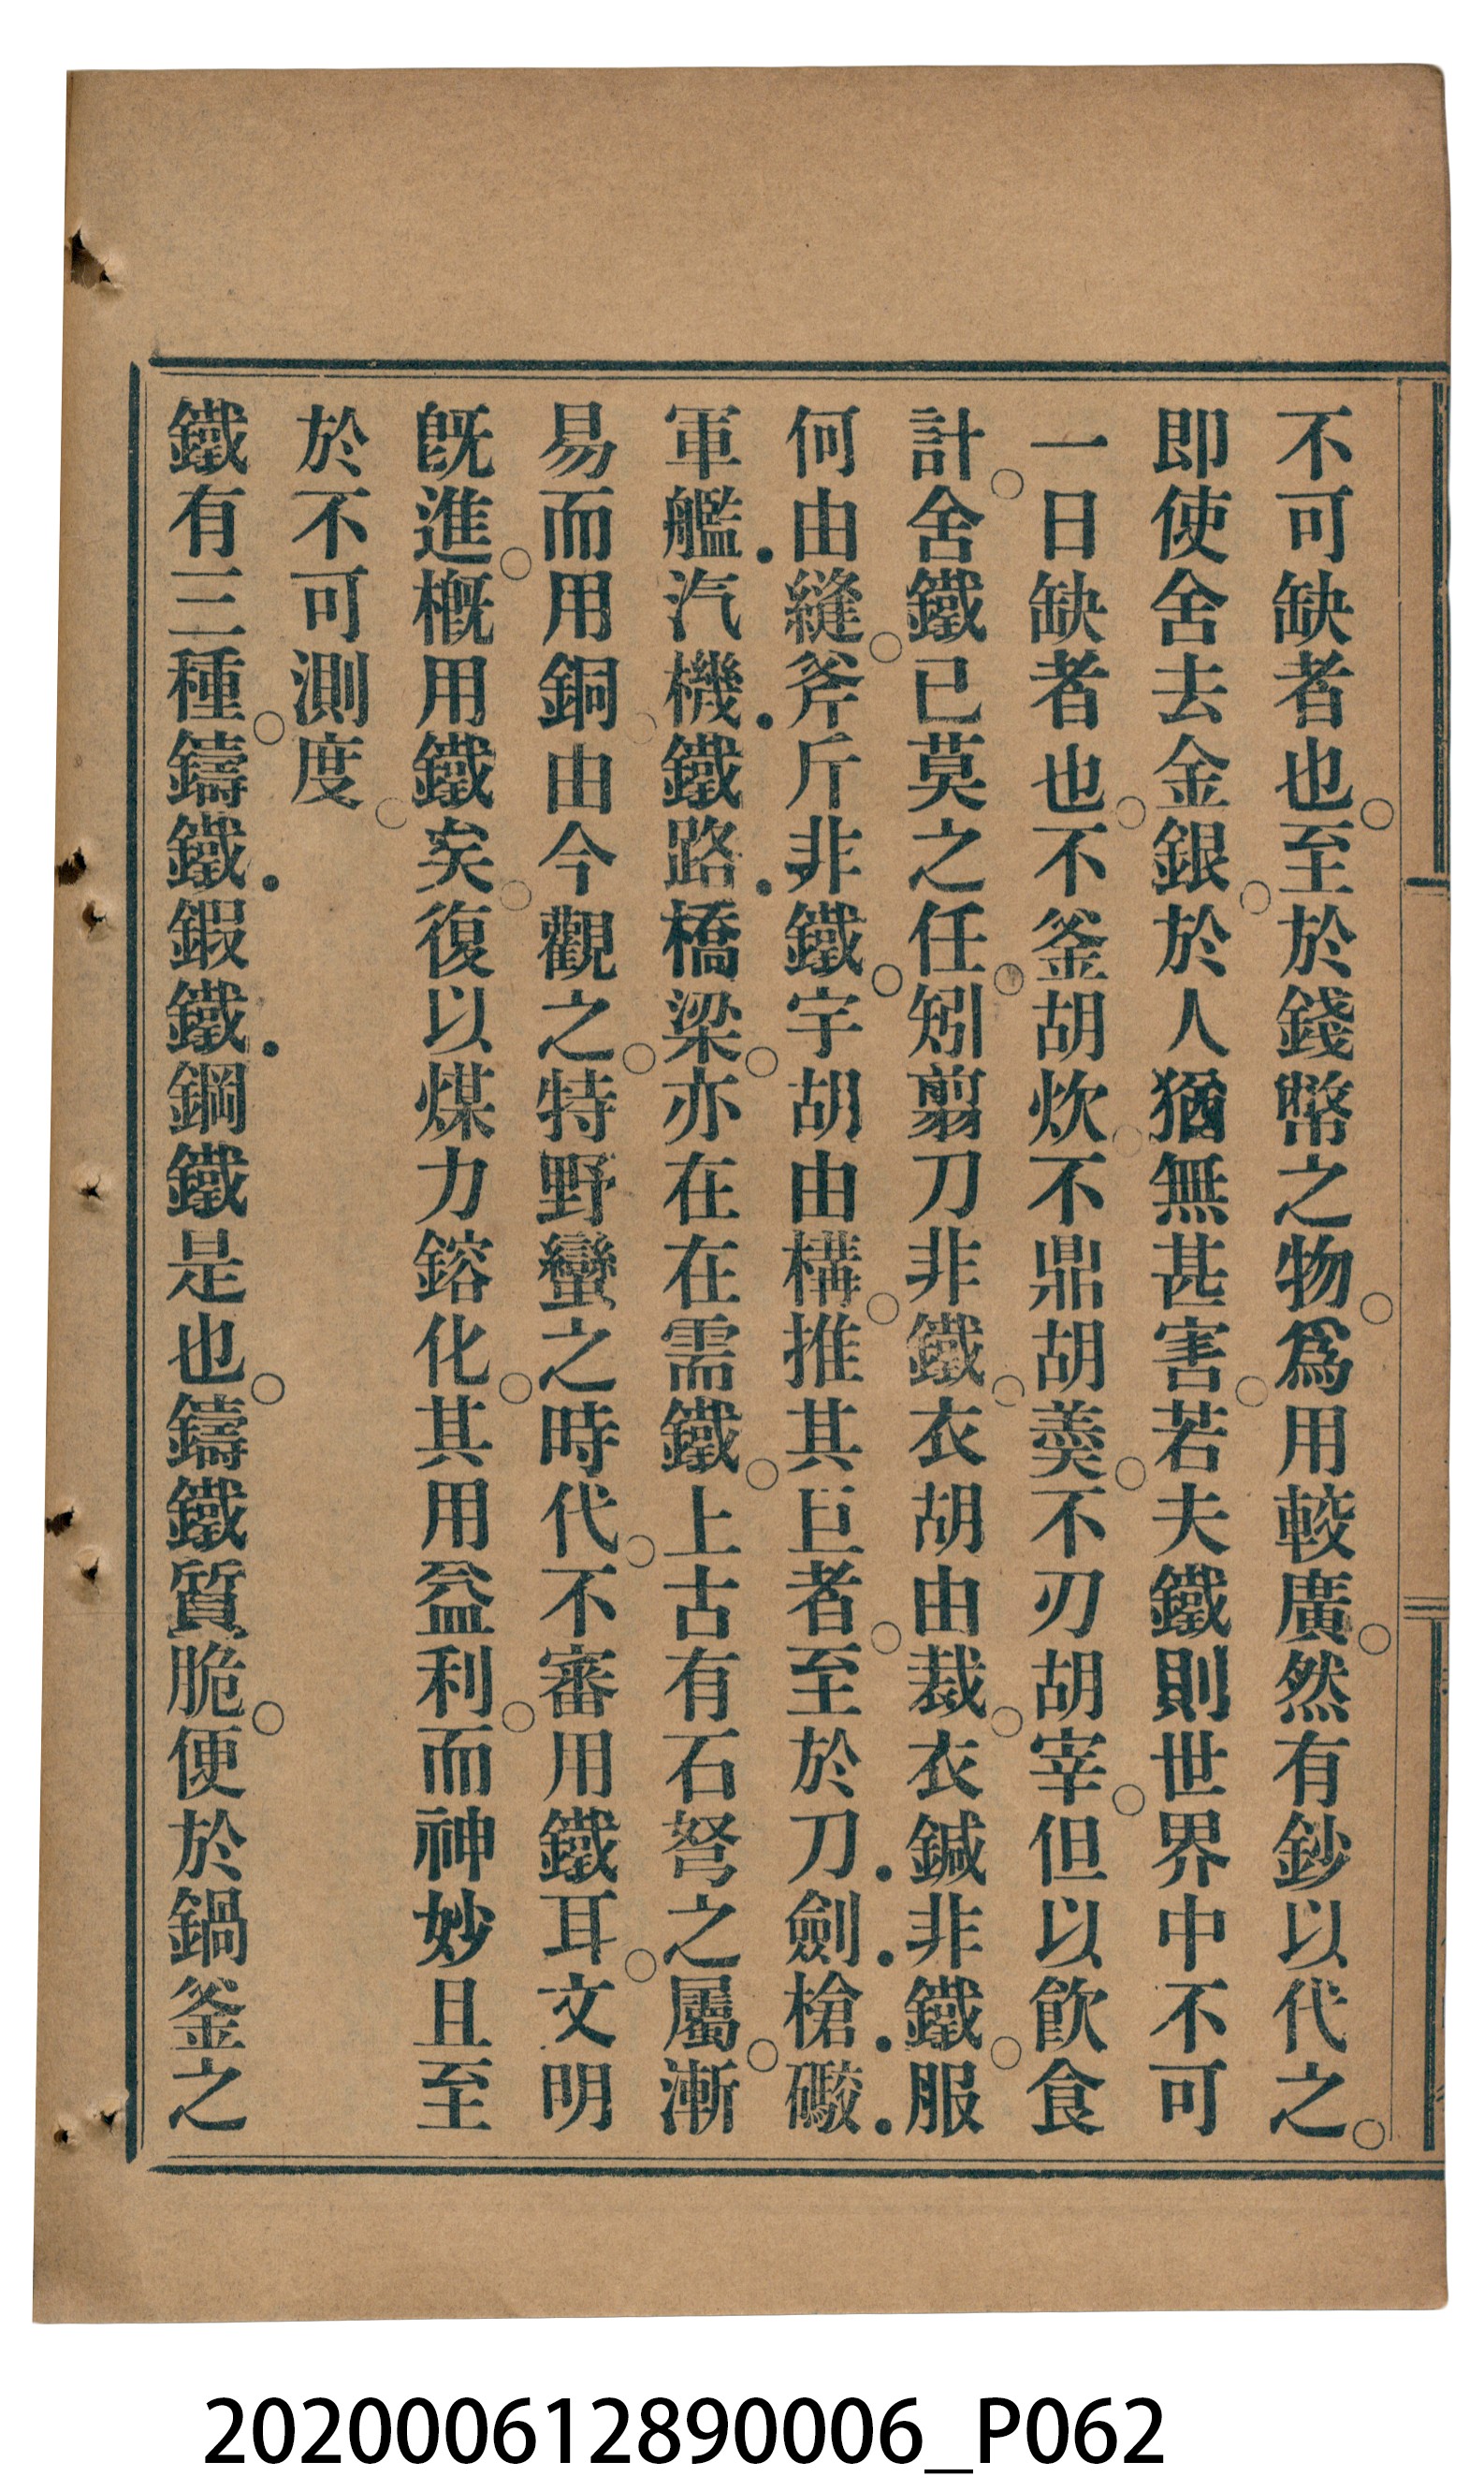 不可缺者也○至於錢幣之物○爲用較廣○然有鈔以代之○
即使舍去金銀○於人猶無甚害○若夫鐵則世界中不可
一日缺者也○不釜胡炊○不鼎胡羹○不刃胡宰○但以飲食
計○舍鐵已莫之任○矧剪刀非鐵○衣胡由裁○衣鍼非鐵○服
何由縫○斧斤非鐵○宇胡由構○推其巨者○至於刀●劍●槍●礮●
軍艦●汽機●鐵路●橋梁○亦在在需鐵○上古有石弩之屬○漸
易而用銅○由今觀之○特野蠻之時代○不審用鐵耳○文明
旣進○槪用鐵矣○復以煤力鎔化○其用益利○而神妙且至
於不可測度○
鐵有三種○鑄鐵●鍜鐵●鋼鐵是也○鑄鐵質脆○便於鍋釜之
202000612890006_P062